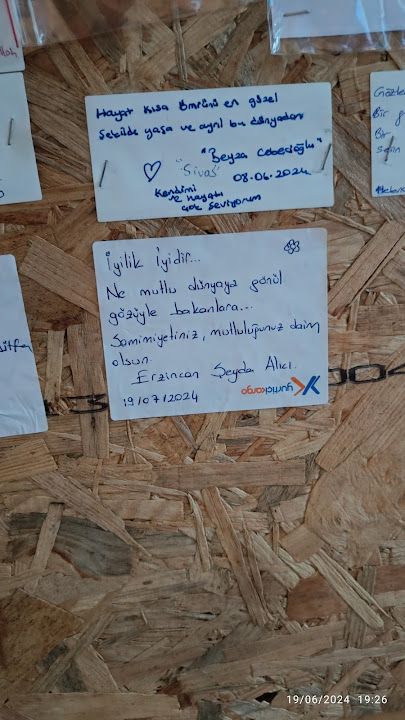 Hayat kısa ömrünü en güzel
şekilde yaşa ve ayrıl bu dünyadan
"Beyza Cebecioğlu"
"Sivas"
08.06.2024
Kendimi
ve hayatı
çok seviyorum
İyilik İyidir...
Ne mutlu dünyaya gönül
gözüyle bakanlara...
Samimiyetiniz, mutluluğunuz daim
olsun.
Erzincan Şeyda Alıcı.
19/07/2024
yurtiçikargo
Gözle
Bir
Bir
Senin
3
004
19/06/2024 19:26